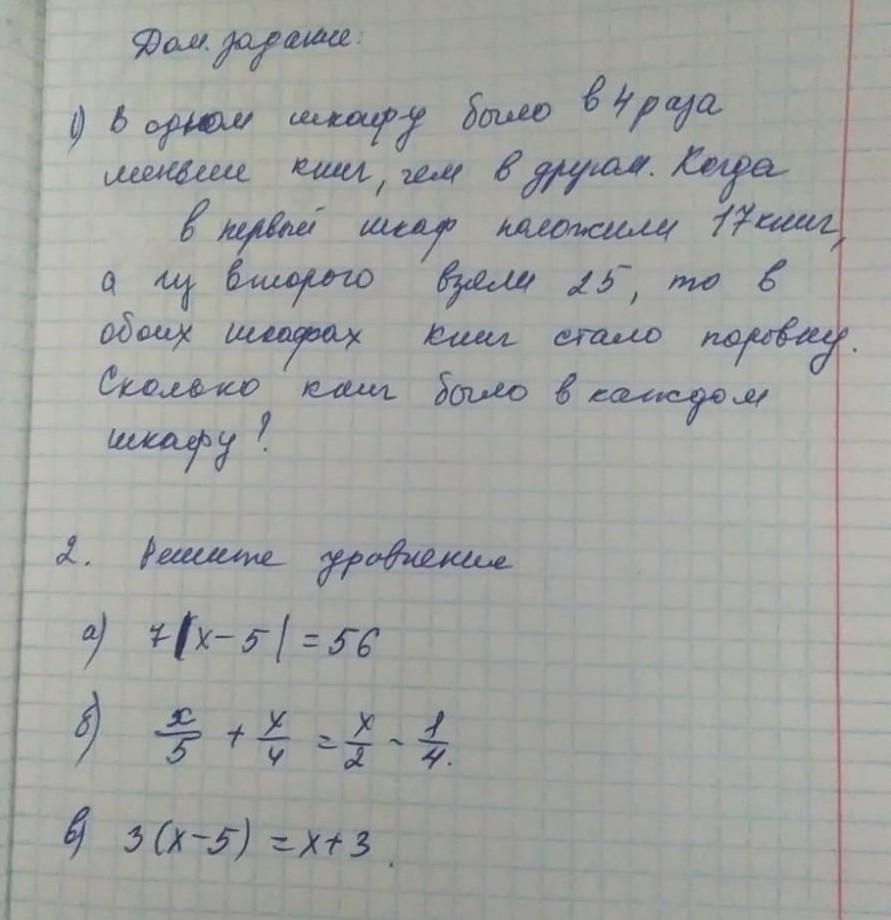 Дом. задание:
1) В одном шкафу было в 4 раза
меньше книг, чем в другом. Когда
в первый шкаф положили 17 книг,
а из второго взяли 25, то в
обоих шкафах книг стало поровну.
Сколько книг было в каждом
шкафу?
2. Решите уравнение
а) 7|x-5|=56
б) x/5 + x/4 = x/2 - 1/4.
в) 3(x-5)=x+3.